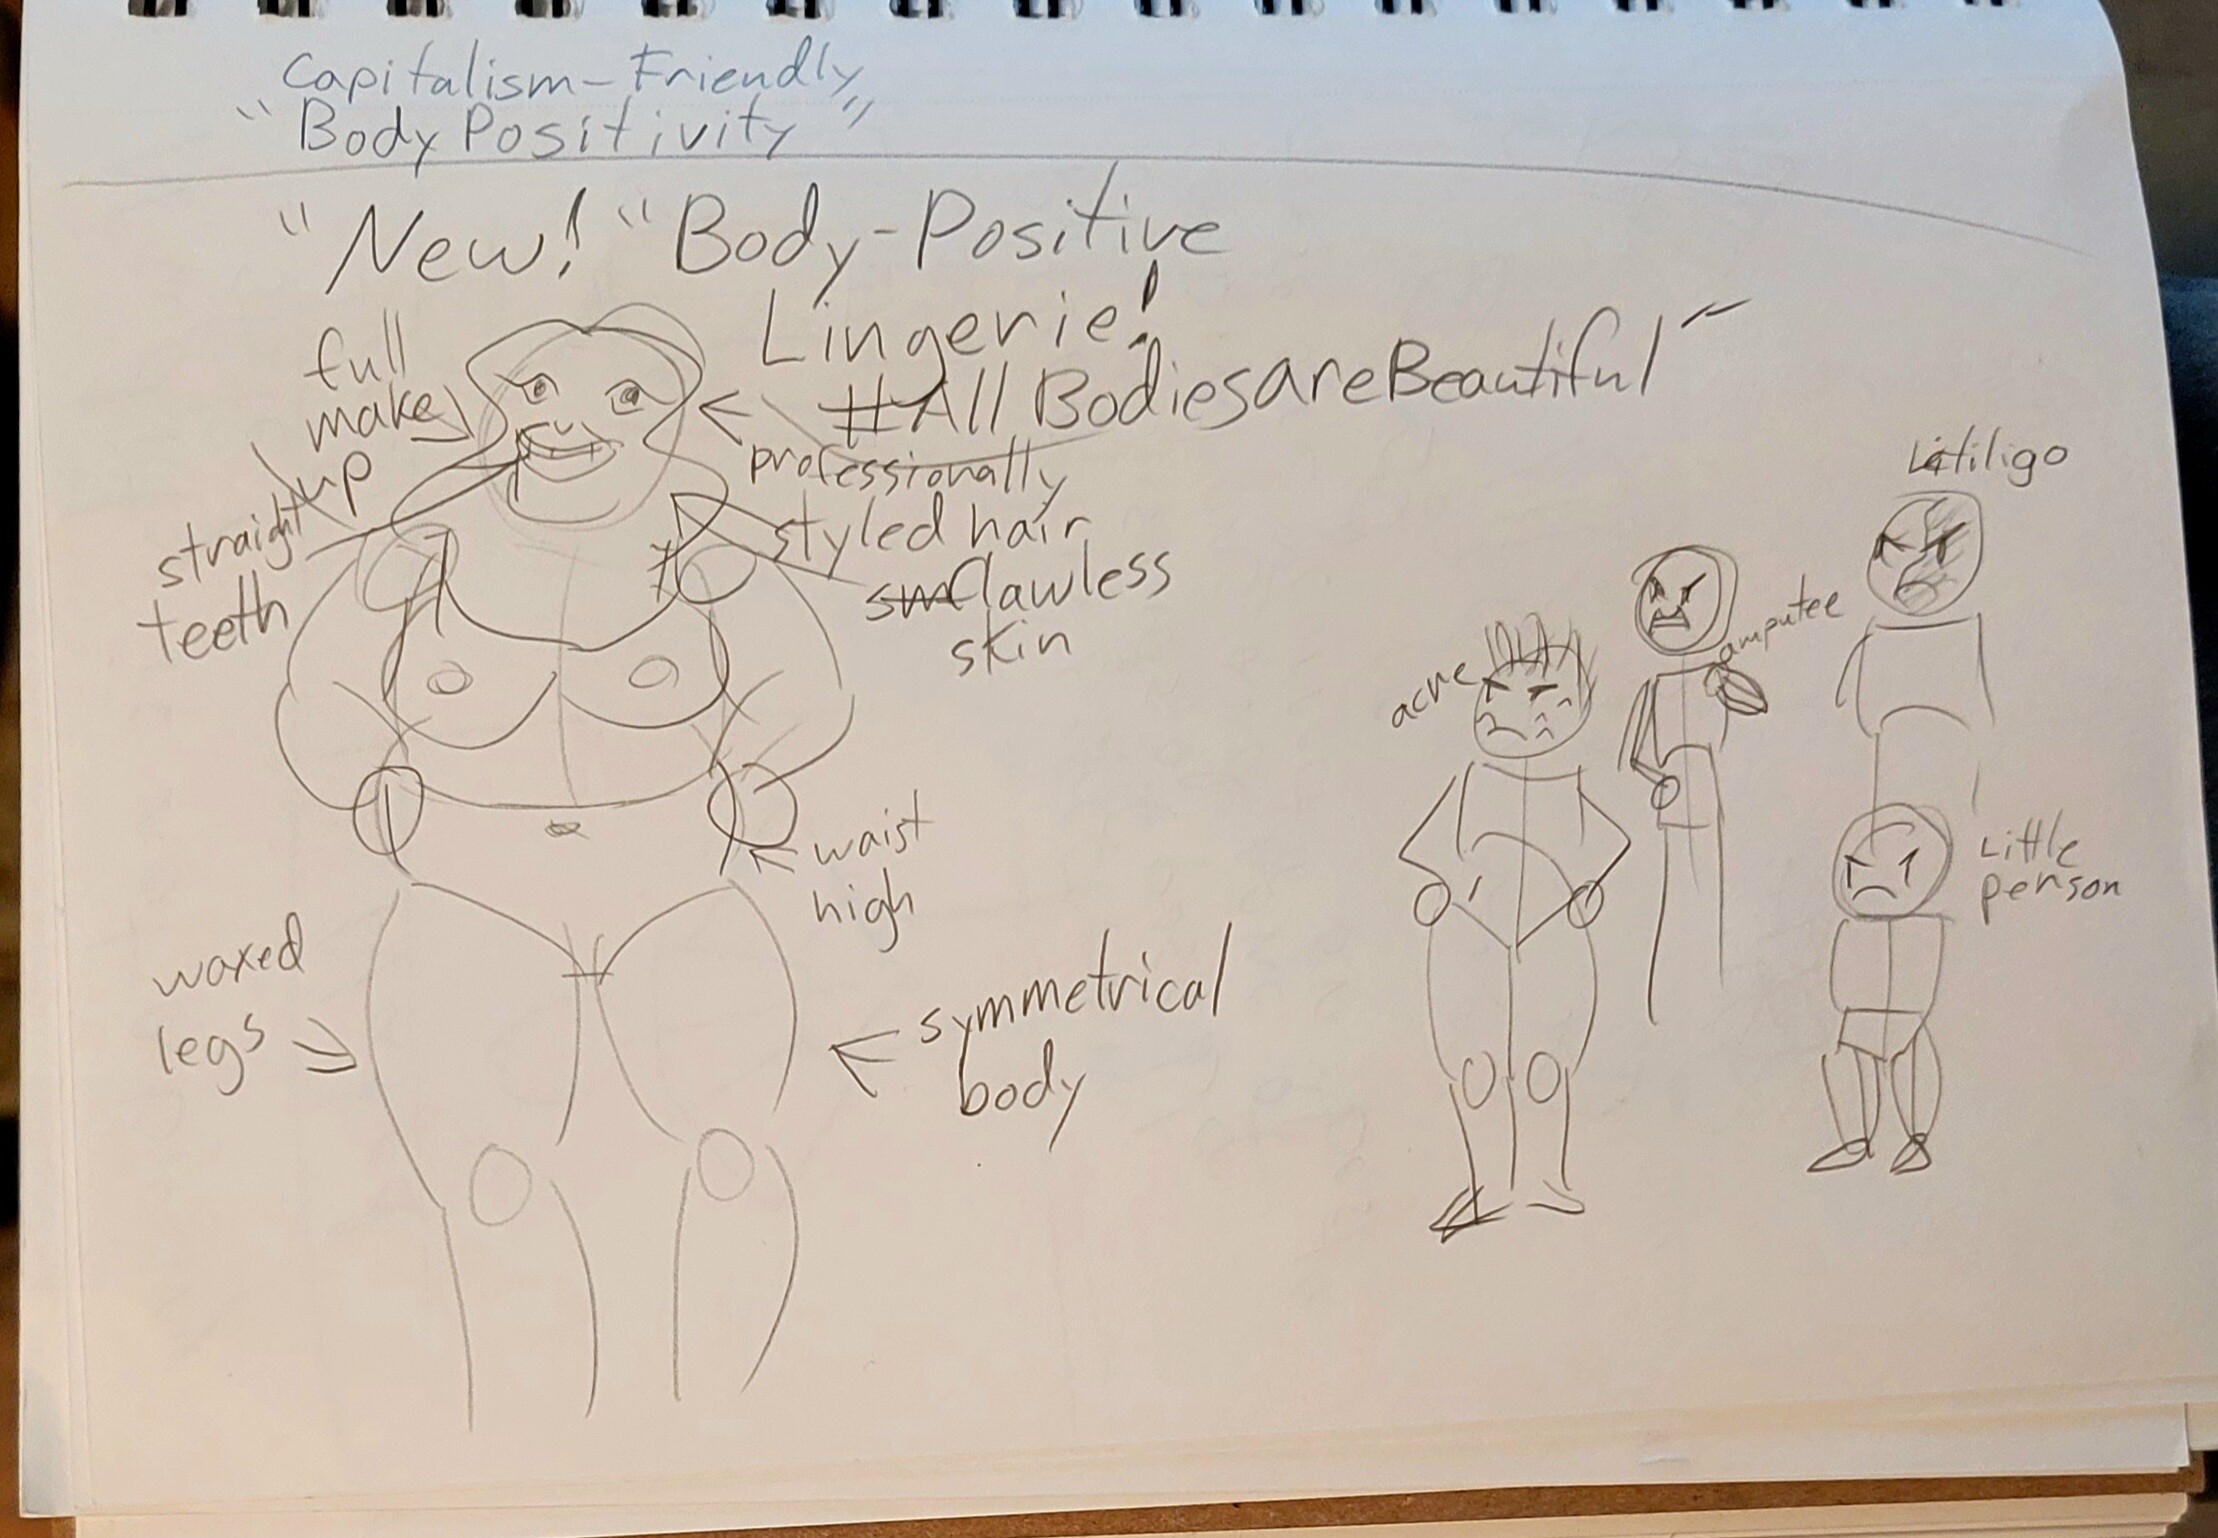 Capitalism-Friendly
"Body Positivity"
"New! "Body-Positive
Lingerie!
#AllBodiesareBeautiful"
full
make
up
straight
teeth
professionally
styled hair
flawless
skin
waist
high
waxed
legs
symmetrical
body
acne
amputee
Little
person